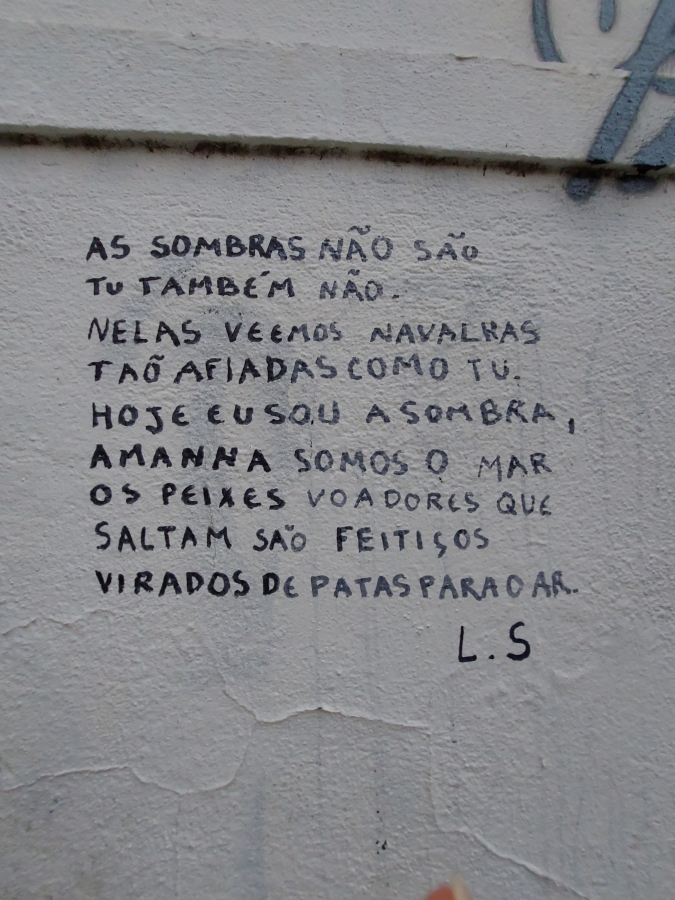 AS SOMBRAS NÃO SÃO
TU TAMBÉM NÃO.
NELAS VEEMOS NAVALHAS
TAÕ AFIADAS COMO TU.
HOJE EU SOU A SOMBRA,
AMANHA SOMOS O MAR
OS PEIXES VOADORES QUE
SALTAM SÃO FEITIÇOS
VIRADOS DE PATAS PARA O AR.
L.S